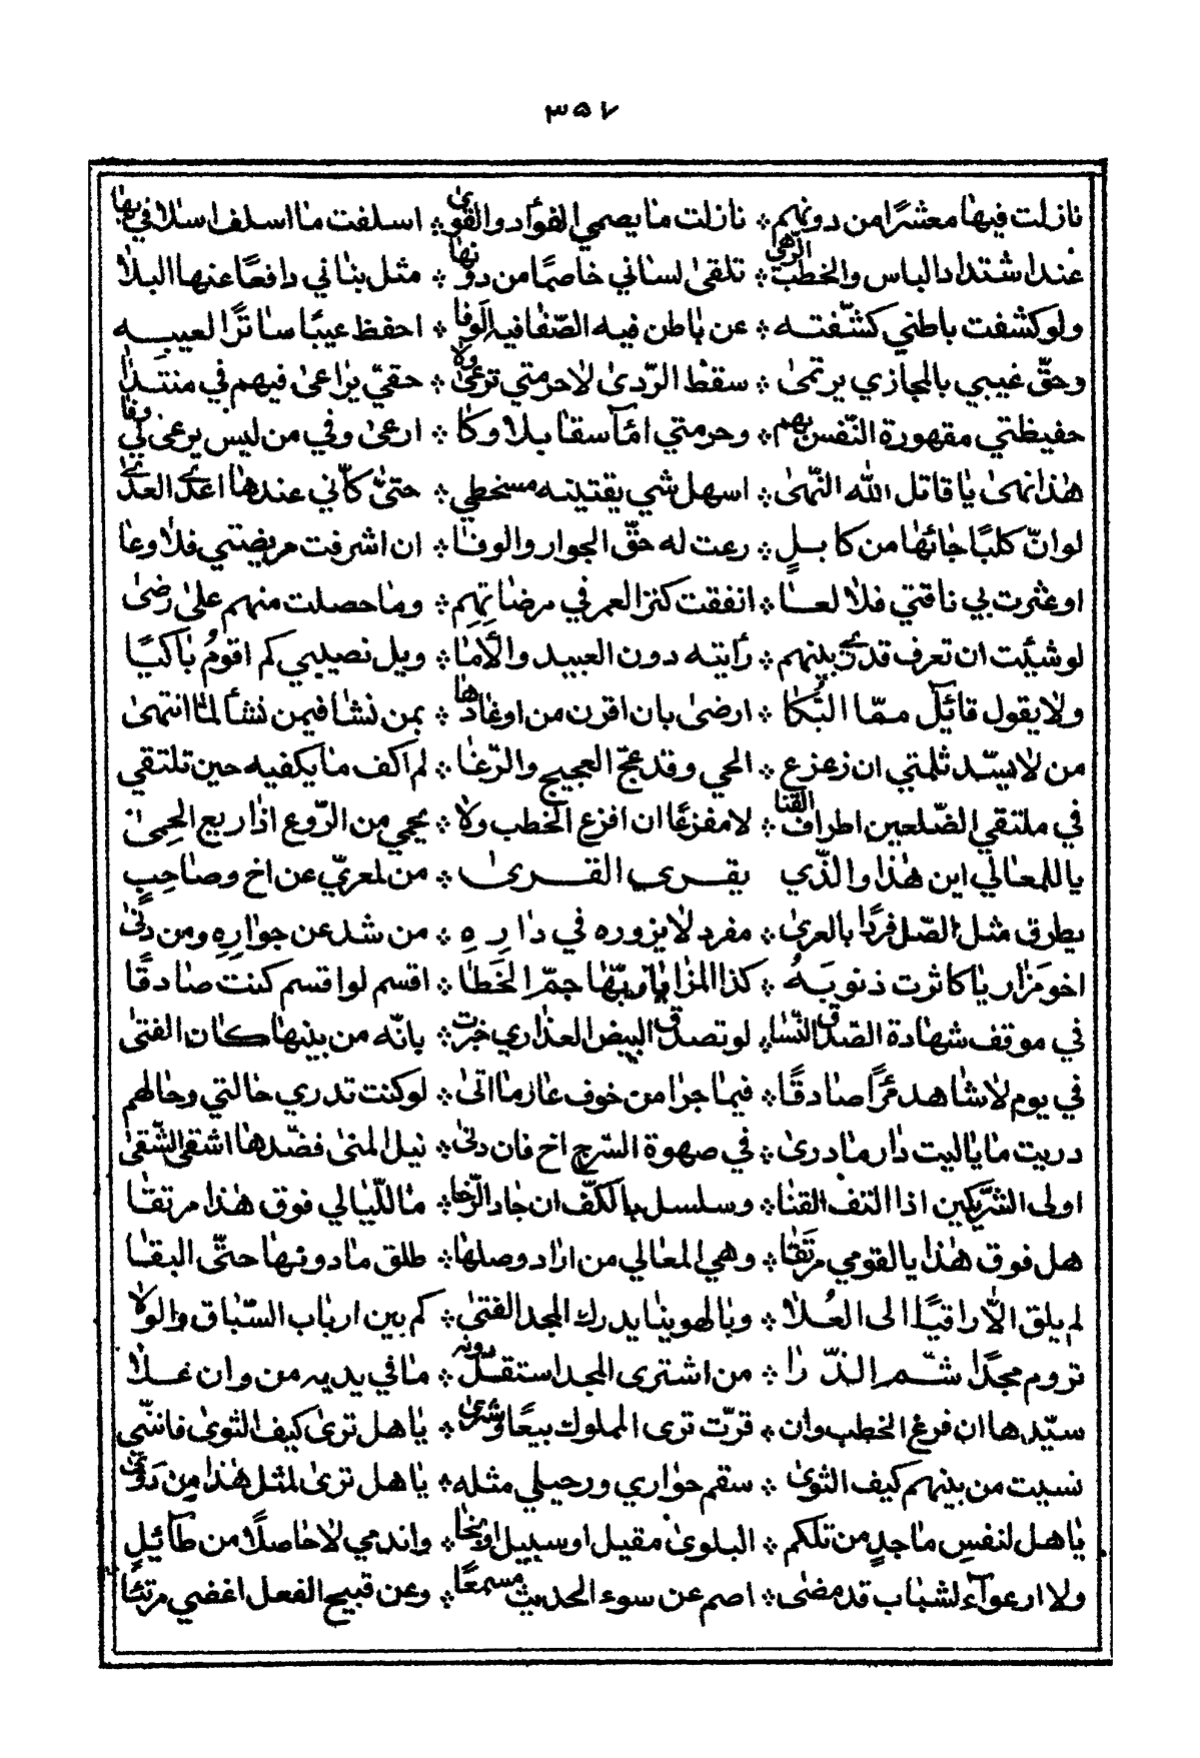 ٣٥٧
نازلت فيها معشرًا من دونهم ⁘ نازلت ما يصمي الفؤاد والقوى ⁘ اسلفت ما اسلف اسلافي بها
عند اشتداد الباس والخطب الزهى ⁘ تلقى لساني خاصمًا من دونها ⁘ مثل بناني دافعًا عنها البلا
ولو كشفت باطني كشّفته ⁘ عن باطن فيه الصّفا فيه الوفا ⁘ احفظ عيبًا ساترًا لعيبه
وحقّ غيبي بالمجازي يرتمى ⁘ سقط الرّدى لا حرمتي ترعى ولا ⁘ حقيّ يراعى فيهم في منتدا
حفيظتي مقهورة النّفس بهم ⁘ وحرمتي امّا سقا بلا وكا ⁘ ارعى وفي من ليس يرعى لي وفا
هذا نهى يا قاتل الله النّهى ⁘ اسهل شي يقتينه مسخطي ⁘ حتىّ كاّني عندها اعدى العدى
لوانّ كلبًا جائها من كابلٍ ⁘ رعت له حقّ الجوار والوفا ⁘ ان اشرفت مريضتي فلا وعا
او عثرت بي ناقتي فلا لعا ⁘ انفقت كنز العمر في مرضاتهم ⁘ وما حصلت منهم على رضى
لو شئت ان تعرف قدري بينهم ⁘ رأيته دون العبيد والأما ⁘ ويل نصيبي كم اقوم باكيًا
ولا يقول قائل ممّا البُكا ⁘ ارضى بان اقرن من اوغادها ⁘ بمن نشا فيمن نشأ لمّا انتهى
من لا يسّد ثلمتي ان زعزع ⁘ الحي وقد عجّ العجيج والرّغا ⁘ لم اكف ما يكفيه حين تلتقي
في ملتقي الضّلعين اطراف القنا ⁘ لا مفزعًا ان افزع الخطب ولا ⁘ يحمي من الرّوع اذا ريع الحمى
يا للمعالي اين هذا والذّي يقري القرى ⁘ من لمعريّ عن اخ وصاحبٍ
يطرق مثل الصّل فردًا بالعرى ⁘ مفرد لا يزوره في دارهِ ⁘ من شد عن جوارهِ ومن دنى
اخو مزار يا كاثرت ذنوبَهُ ⁘ كذا المزايا ربّها جمّ الخطا ⁘ اقسم لو اقسم كنت صادقًا
في موقف شهادة الصّدق النّسا ⁘ لو تصدق البيض العذاري خبرت ⁘ بانّه من بينها كان الفتى
في يوم لا شاهد مُرًّا صادقًا ⁘ فيما جرا من خوف عار ما اتى ⁘ لو كنت تدري حالتي وحالهم
دريت ما يا ليت دار ما درى ⁘ في صهوة السّرج اخ فان دنى ⁘ نيل المنى فضّدها اشقى الشّقى
اولى الشّريكين اذا التف القنا ⁘ وسلسل بالكفّ ان جاد الرّخا ⁘ ما للّيالي فوق هذا مرتقا
هل فوق هذا يا لقومي مرتَقا ⁘ وهي المعالي من اراد وصلها ⁘ طلق ما دونها حتّى البقا
لم يلق الاّ راقيًا الى العُلا ⁘ وبالهوينا يدرك المجد الفتى ⁘ كم بين ارباب السّباق والولا
تروم مجدًا شمّ الذّرا ⁘ من اشترى المجد استقلّ دونه ⁘ ما في يديه من وان غلا
سيّدها ان فرغ الخطب وان ⁘ قرّت ترى الملوك بيعًا وشرى ⁘ يا هل ترى كيف الثوى فانّني
نسيت من بينهم كيف الثوى ⁘ سقم حواري ورحيلي مثله ⁘ يا هل ترى لمثل هذا من دوى
يا هل لنفسٍ ماجدٍ من تلكم ⁘ البلوى مقيل او سبيل او نجا ⁘ واندمي لا حاصلًا من طآئلٍ
ولا ارعوآء لشباب قد مضى ⁘ اصم عن سوء الحديث مسمعًا ⁘ وعن قبيح الفعل اغضي مرتئا